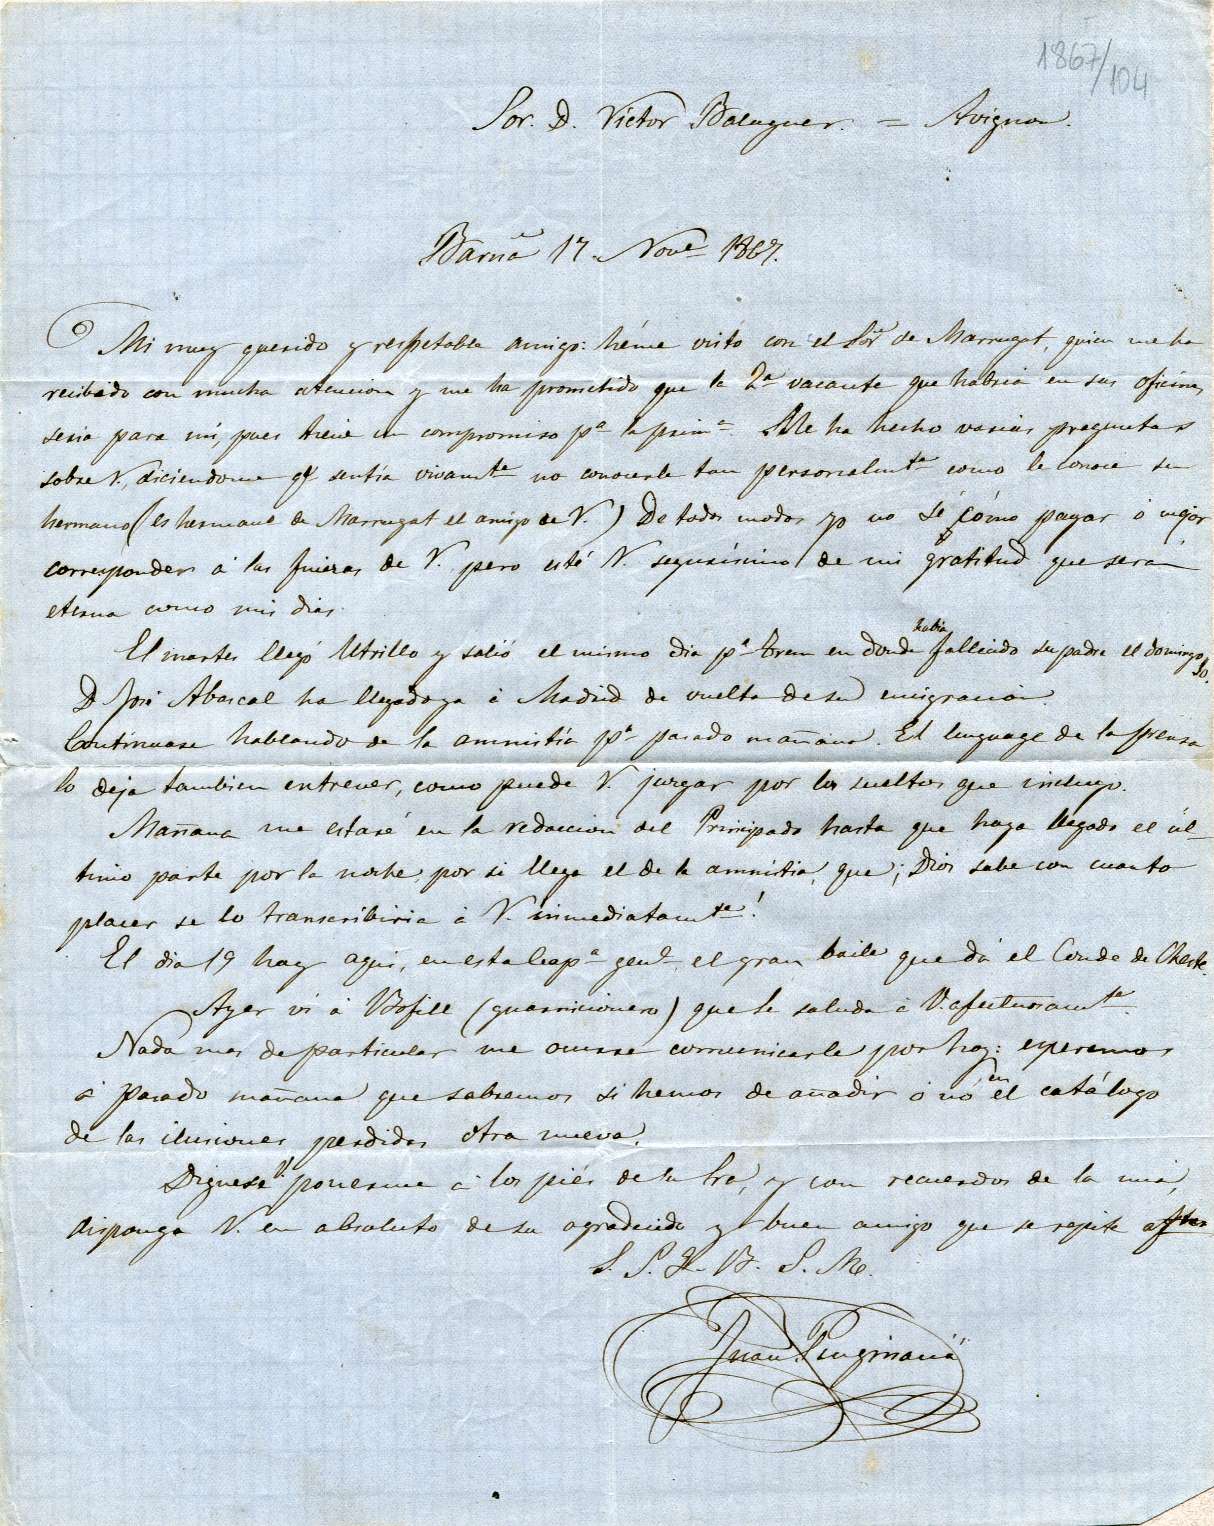 1867/104
Sor. D. Víctor Balaguer. = Avignon.
Barna 17. Nove 1867.
Mi muy querido y respetable amigo: héme visto con el Sor de Marrugat, quien me ha
recibido con mucha atencion y me ha prometido que la 2a vacante que habria en sus oficinas
seria para mi, pues tiene un compromiso pa la prima. Me ha hecho varias preguntas
sobre V., diciendome qe sentía vivamte no conocerle tan personalmte como le conoce su
hermano (es hermano de Marrugat el amigo de V.) De todos modos yo no sé cómo pagar ó mejor
corresponder á las finezas de V. pero esté V. segurísimo de mi gratitud que será
eterna como mis dias.
El martes llegó Utrillo y salió el mismo dia pa Trem en donde habia fallecido su padre el domingo 10.
D José Abascal ha llegado ya á Madrid de vuelta de su emigracion.
Continuase hablando de la amnistía pa pasado mañana. El lenguage de la prensa
lo deja tambien entrever, como puede V. juzgar por los sueltos que incluyo.
Mañana me estaré en la redaccion del Principado hasta que haya llegado el úl-
timo parte por la noche, por si llega el de la amnistia, que ¡Dios sabe con cuanto
placer se lo transcribiria á V. inmediatamte!
El dia 19 hay aquí, en esta Capa genl, el gran baile que dá el Conde de Cheste.
Ayer ví á Bofill (guarnicionero) que le saluda á V. afectuosamte.
Nada mas de particular me ocurre comunicarle por hoy: esperemos
á pasado mañana que sabremos si hemos de añadir ó nó en el catálogo
de las ilusiones perdidas otra nueva.
Dignese V. ponerme á los piés de su Sra, y con recuerdos de la mia,
disponga V. en absoluto de su agradecido y buen amigo que se repite
S. S. Q. B. S. M.
Juan Puigmariá